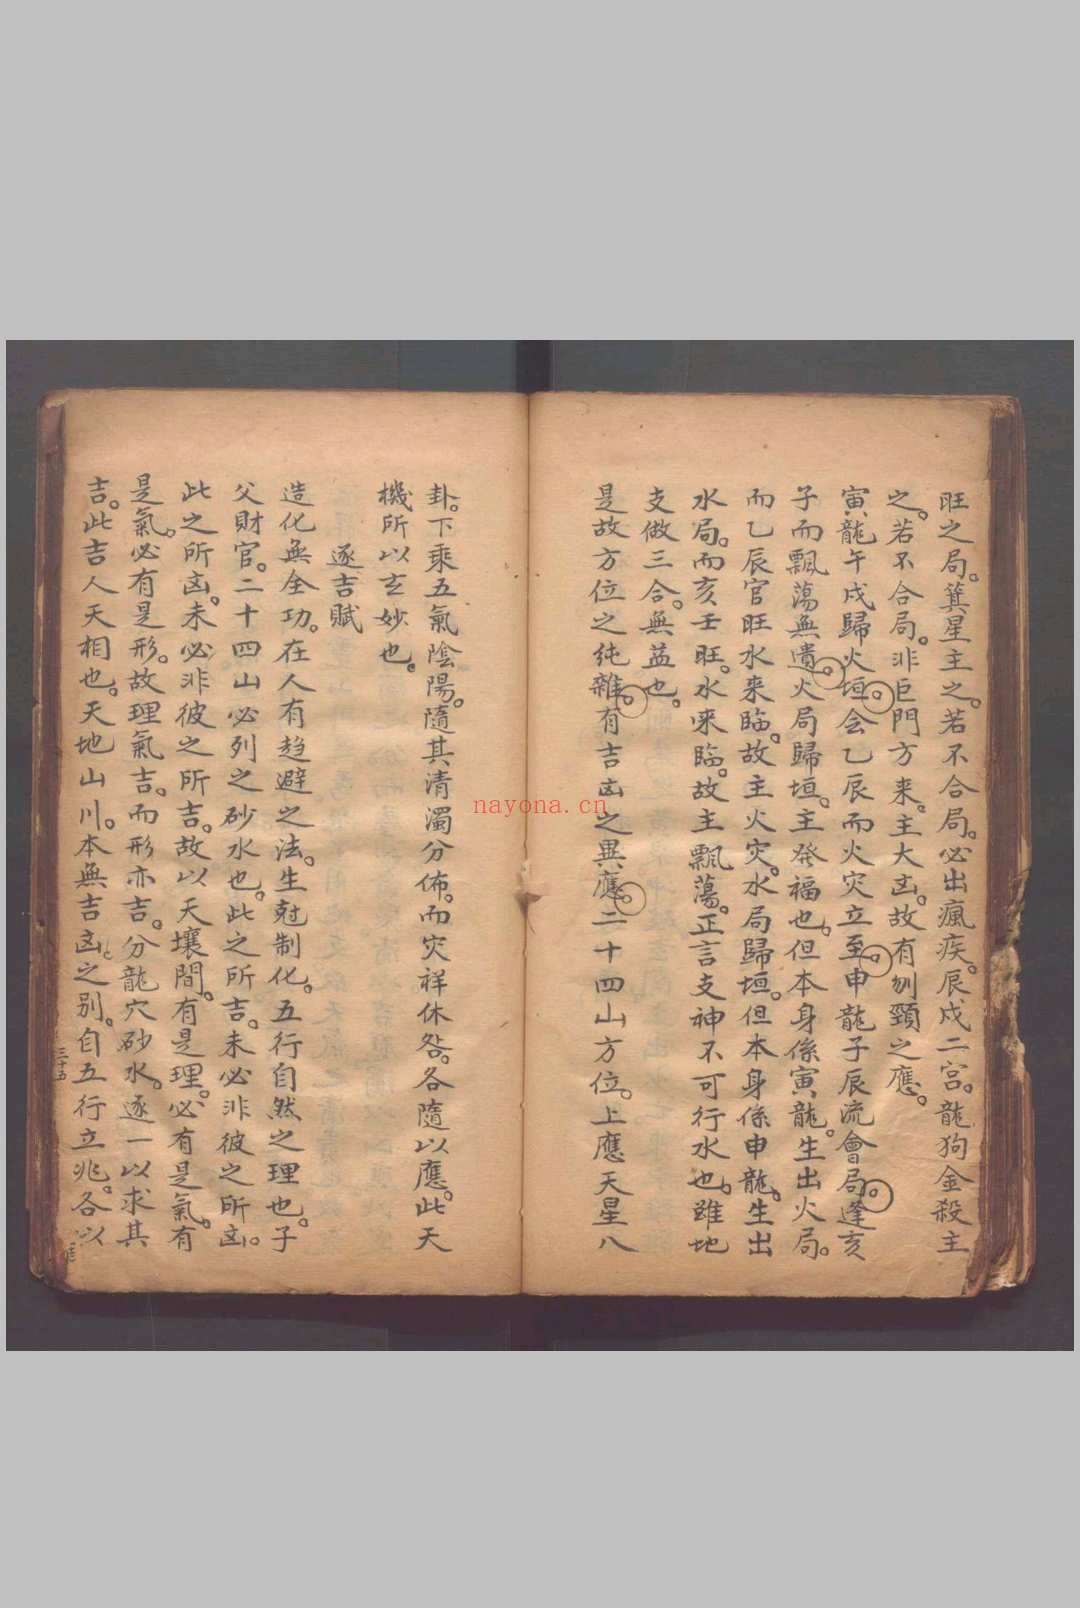 旺之局。箕星主之。若不合局。必出瘋疾。辰戌二宮。龍狗金殺主
之。若不合局。非巨門方来。主大凶。故有刎頸之應。
寅龍午戌歸火垣。会乙辰而火灾立至。申龍子辰流會局。逢亥
子而飄蕩無遺。火局歸垣。主發福也。但本身係寅龍。生出火局。
而乙辰官旺水来臨。故主火灾。水局歸垣。但本身係申龍。生出
水局。而亥壬旺。水来臨。故主飄蕩。正言支神不可行水也。雖地
支做三合。無益也。
是故方位之純雜。有吉凶之異應。二十四山方位。上應天星八
卦。下乘五氣陰陽。隨其清濁分佈。而灾祥休咎。各隨以應。此天
機所以玄妙也。
逐吉賦
造化無全功。在人有趋避之法。生尅制化。五行自然之理也。子
父財官。二十四山必列之砂水也。此之所吉。未必非彼之所凶。
此之所凶。未必非彼之所吉。故以天壤間。有是理。必有是氣。有
是氣。必有是形。故理氣吉。而形亦吉。分龍穴砂水。逐一以求其
吉。此吉人天相也。天地山川。本無吉凶之别。自五行立兆。各以
三十五
nayona.cn